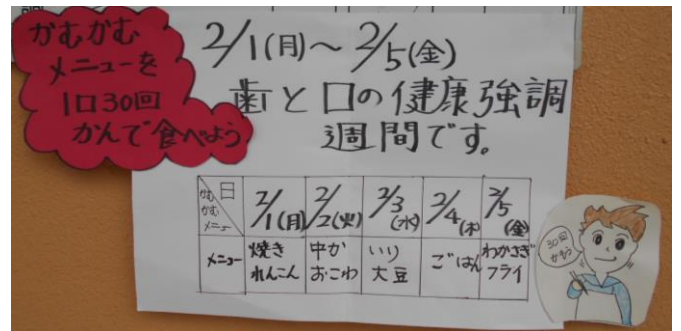 かむかむ
メニューを
1口30回
かんで食べよう
2/1(月)～2/5(金)
歯と口の健康強調
週間です。
日
かむ
かむ
メニュー
2/1(月) 2/2(火) 2/3(水) 2/4(木) 2/5(金)
メニュー
焼き
れんこん
中か
おこわ
いり
大豆
ごはん
わかさぎ
フライ
30回
かもう